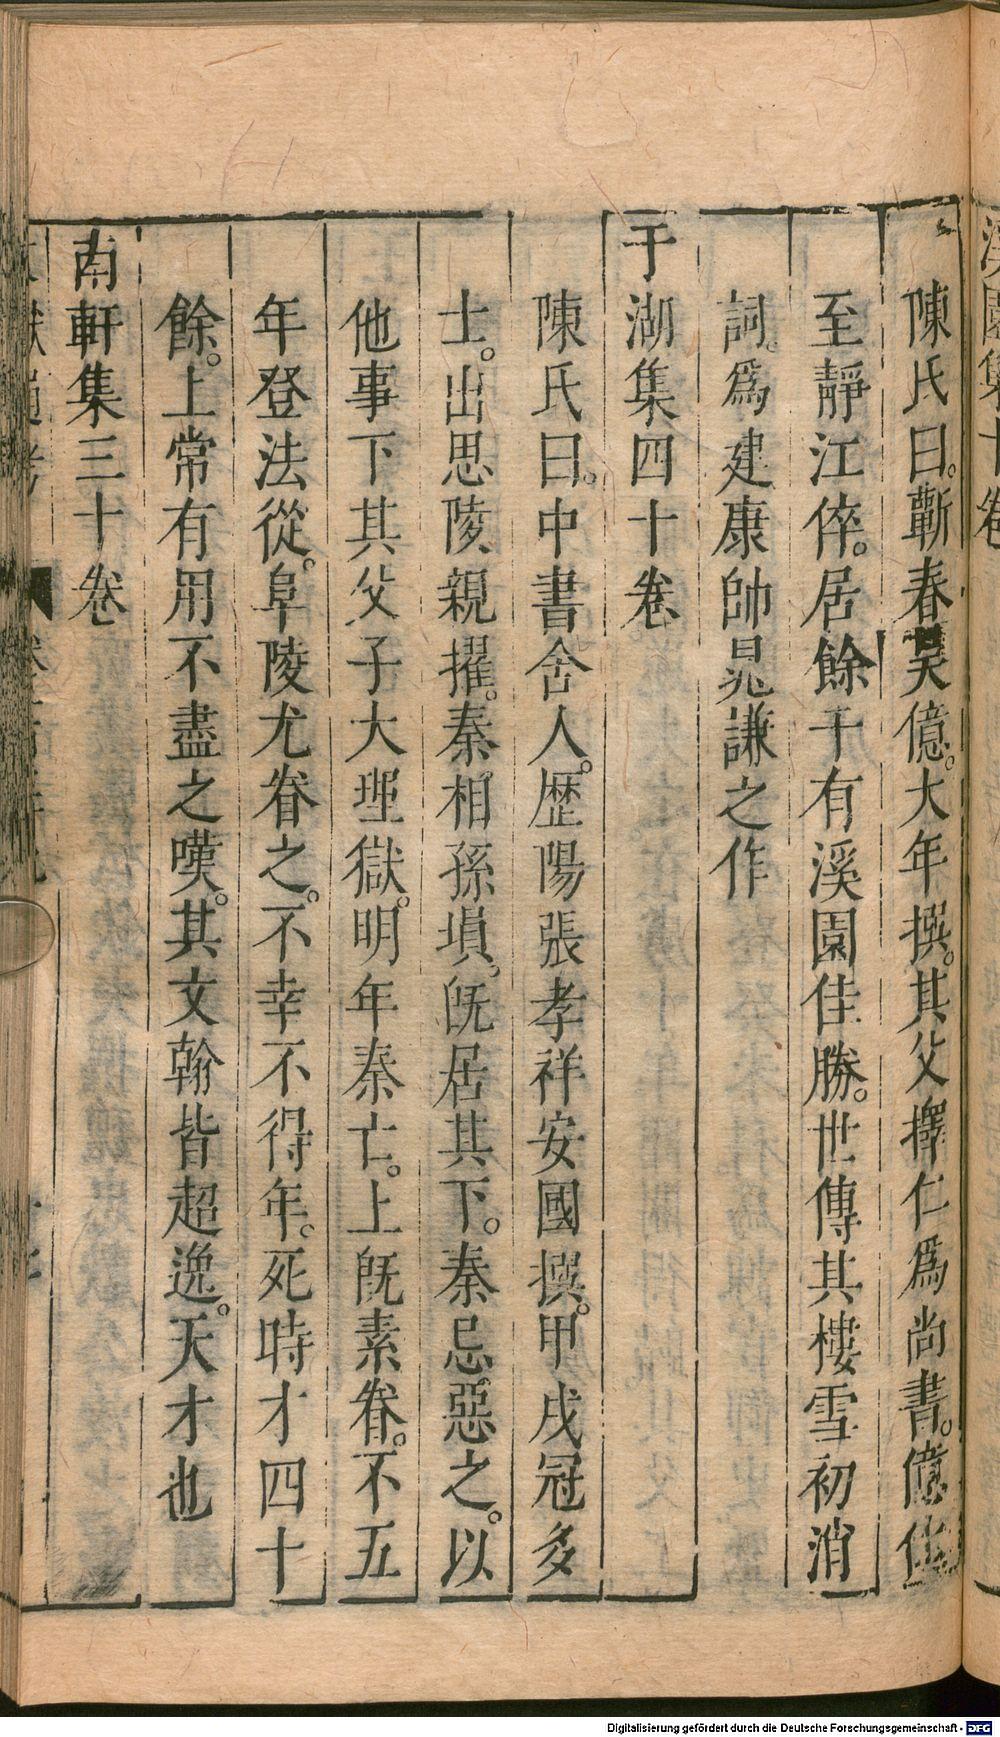 溪園集十卷
陳氏曰。蘄春吳億。大年撰。其父擇仁爲尚書。億仕
至靜江倅。居餘干有溪園佳勝。世傳其樓雪初消
詞。爲建康帥晁謙之作
于湖集四十卷
陳氏曰。中書舍人。歷陽張孝祥安國撰。甲戌冠多
士。出思陵親擢。秦相孫塤。旣居其下。秦忌惡之。以
他事下其父子大理獄。明年秦亡。上旣素眷。不五
年登法從。阜陵尤眷之。不幸不得年。死時才四十
餘。上常有用不盡之嘆。其文翰皆超逸。天才也
南軒集三十卷
Digitalisierung gefördert durch die Deutsche Forschungsgemeinschaft - DFG